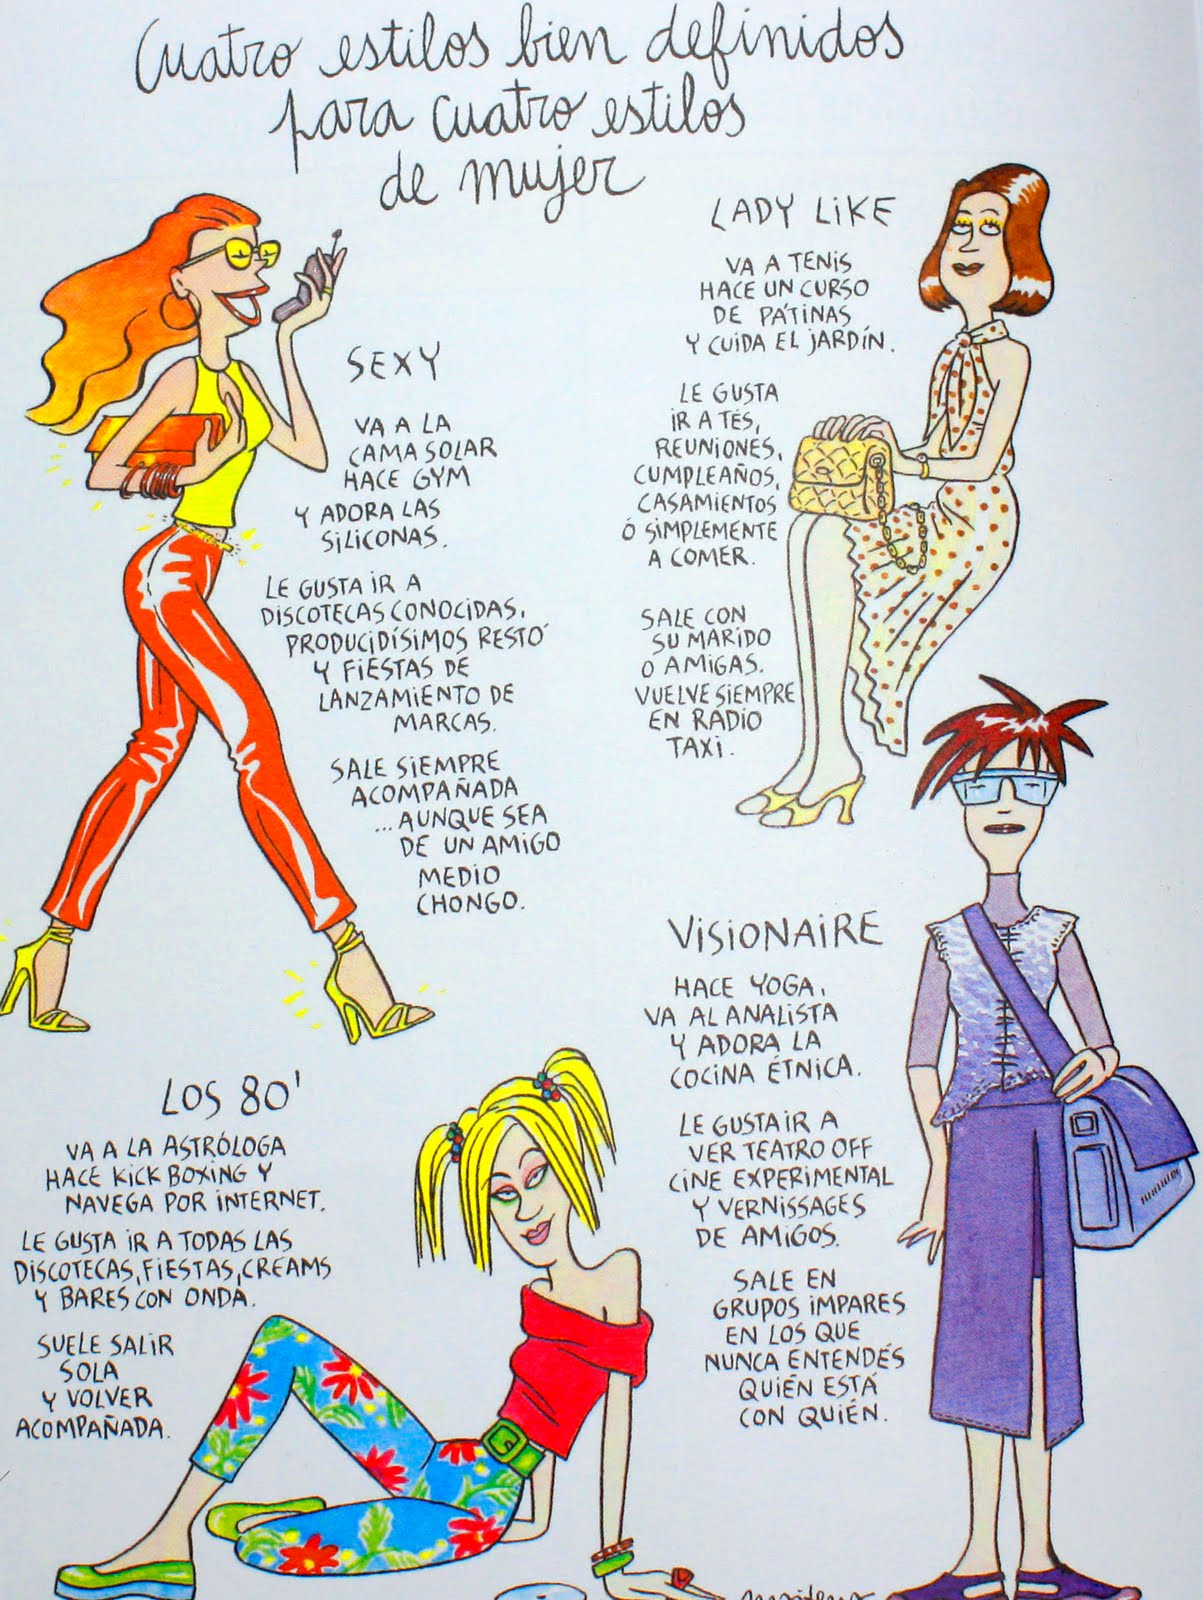 Cuatro estilos bien definidos
para cuatro estilos
de mujer
SEXY
VA A LA
CAMA SOLAR
HACE GYM
Y ADORA LAS
SILICONAS.
LE GUSTA IR A
DISCOTECAS CONOCIDAS,
PRODUCIDÍSIMOS RESTÓ
Y FIESTAS DE
LANZAMIENTO DE
MARCAS.
SALE SIEMPRE
ACOMPAÑADA
...AUNQUE SEA
DE UN AMIGO
MEDIO
CHONGO.
LADY LIKE
VA A TENIS
HACE UN CURSO
DE PÁTINAS
Y CUIDA EL JARDÍN.
LE GUSTA
IR A TÉS,
REUNIONES,
CUMPLEAÑOS,
CASAMIENTOS
Ó SIMPLEMENTE
A COMER.
SALE CON
SU MARIDO
O AMIGAS.
VUELVE SIEMPRE
EN RADIO
TAXI.
LOS 80'
VA A LA ASTRÓLOGA
HACE KICK BOXING Y
NAVEGA POR INTERNET.
LE GUSTA IR A TODAS LAS
DISCOTECAS, FIESTAS, CREAMS
Y BARES CON ONDA.
SUELE SALIR
SOLA
Y VOLVER
ACOMPAÑADA.
VISIONAIRE
HACE YOGA,
VA AL ANALISTA
Y ADORA LA
COCINA ÉTNICA.
LE GUSTA IR A
VER TEATRO OFF
CINE EXPERIMENTAL
Y VERNISSAGES
DE AMIGOS.
SALE EN
GRUPOS IMPARES
EN LOS QUE
NUNCA ENTENDÉS
QUIÉN ESTÁ
CON QUIÉN.